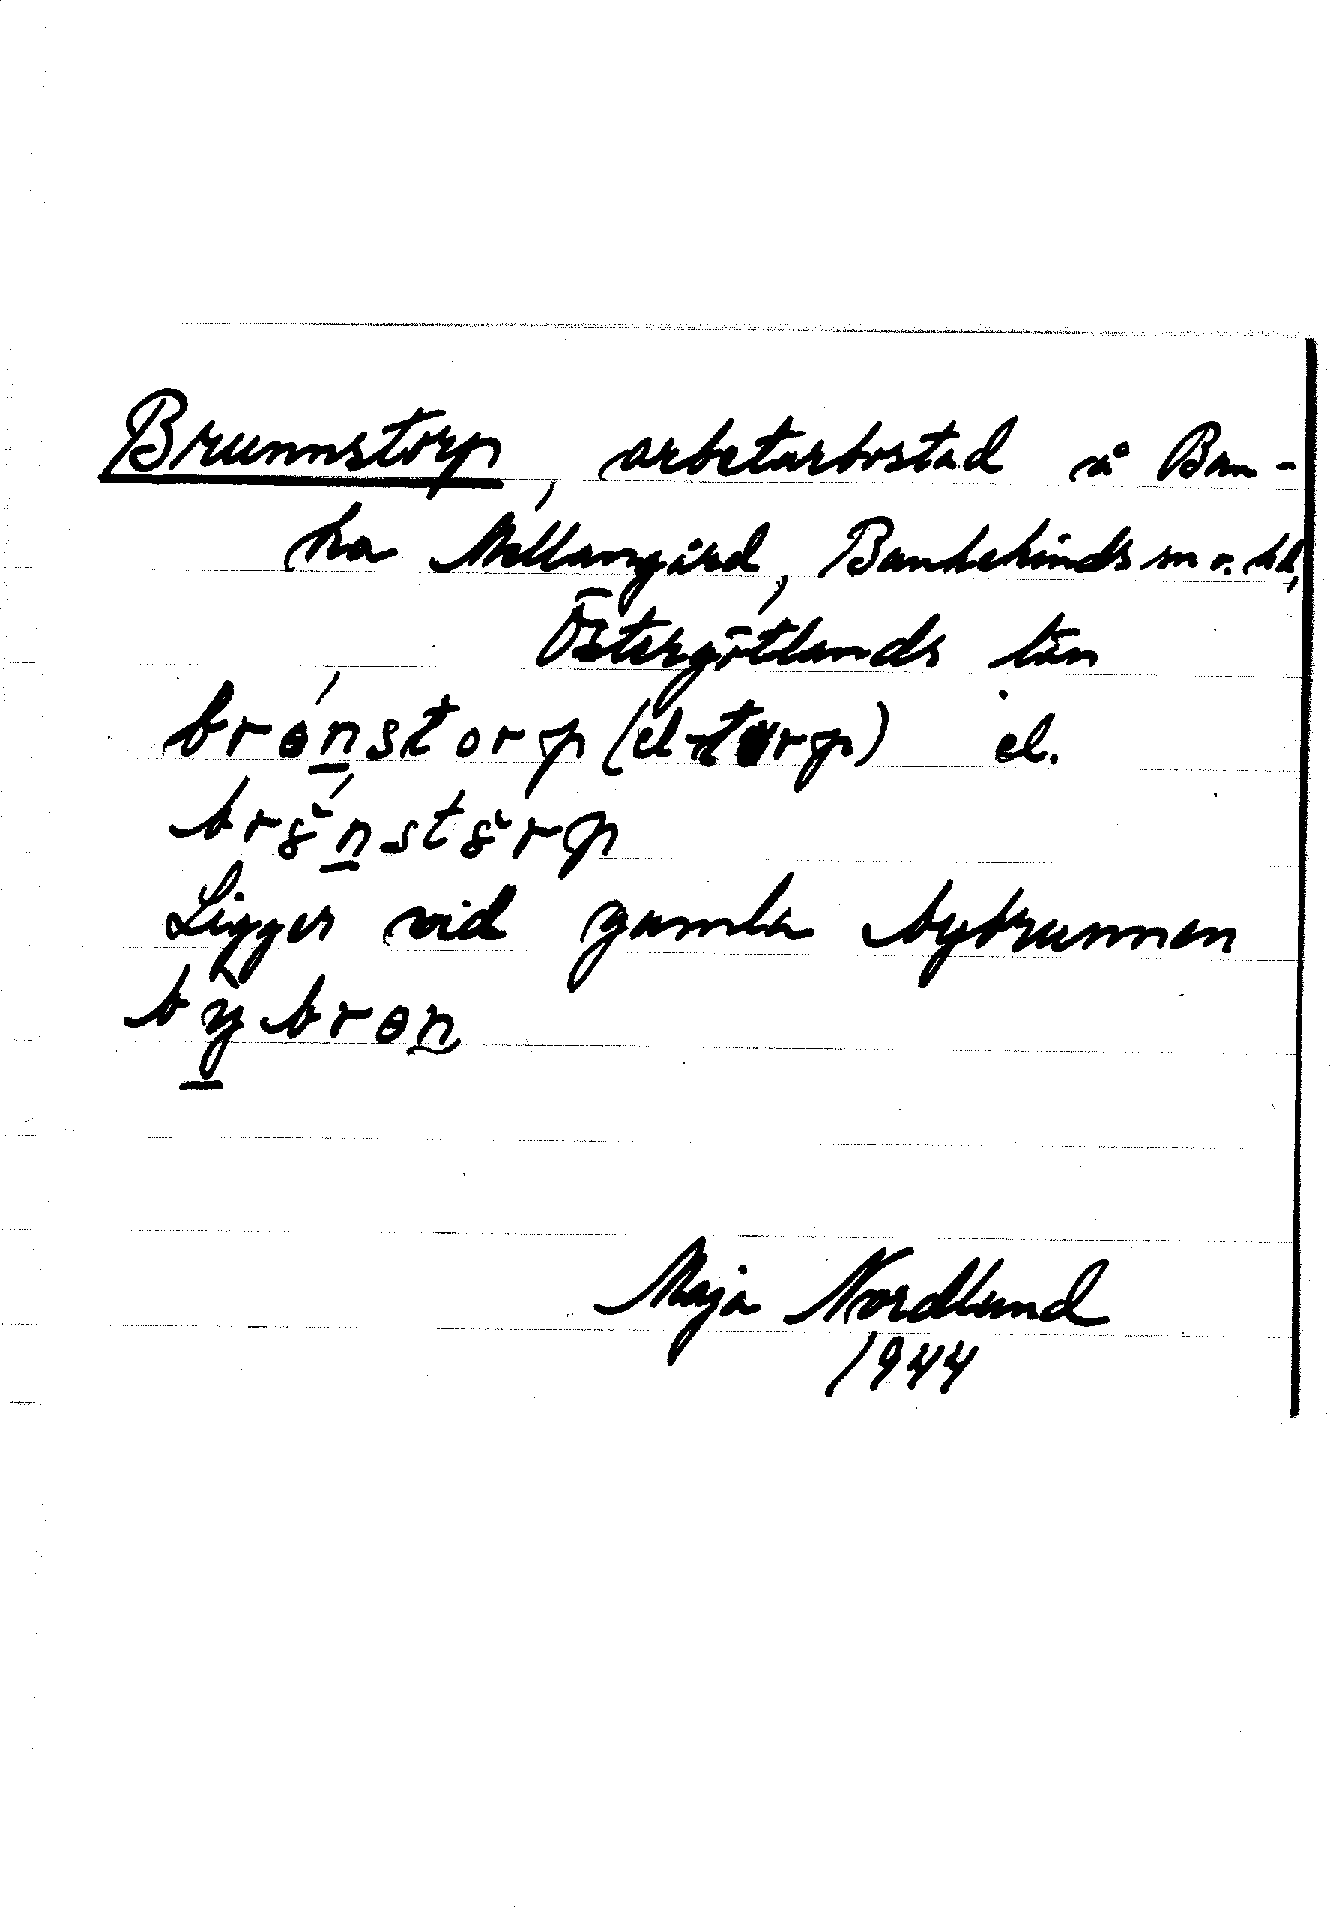 Brunnstorp, arbetarbostad å Ban-
ka Mellangård, Bankekinds sn o. hd,
Östergötlands län
brɵ́n̲storp (el -torp) el.
n̲st
Ligger vid gamla bybrunnen
by̲brɵn̲
Maja Nordlund
1944